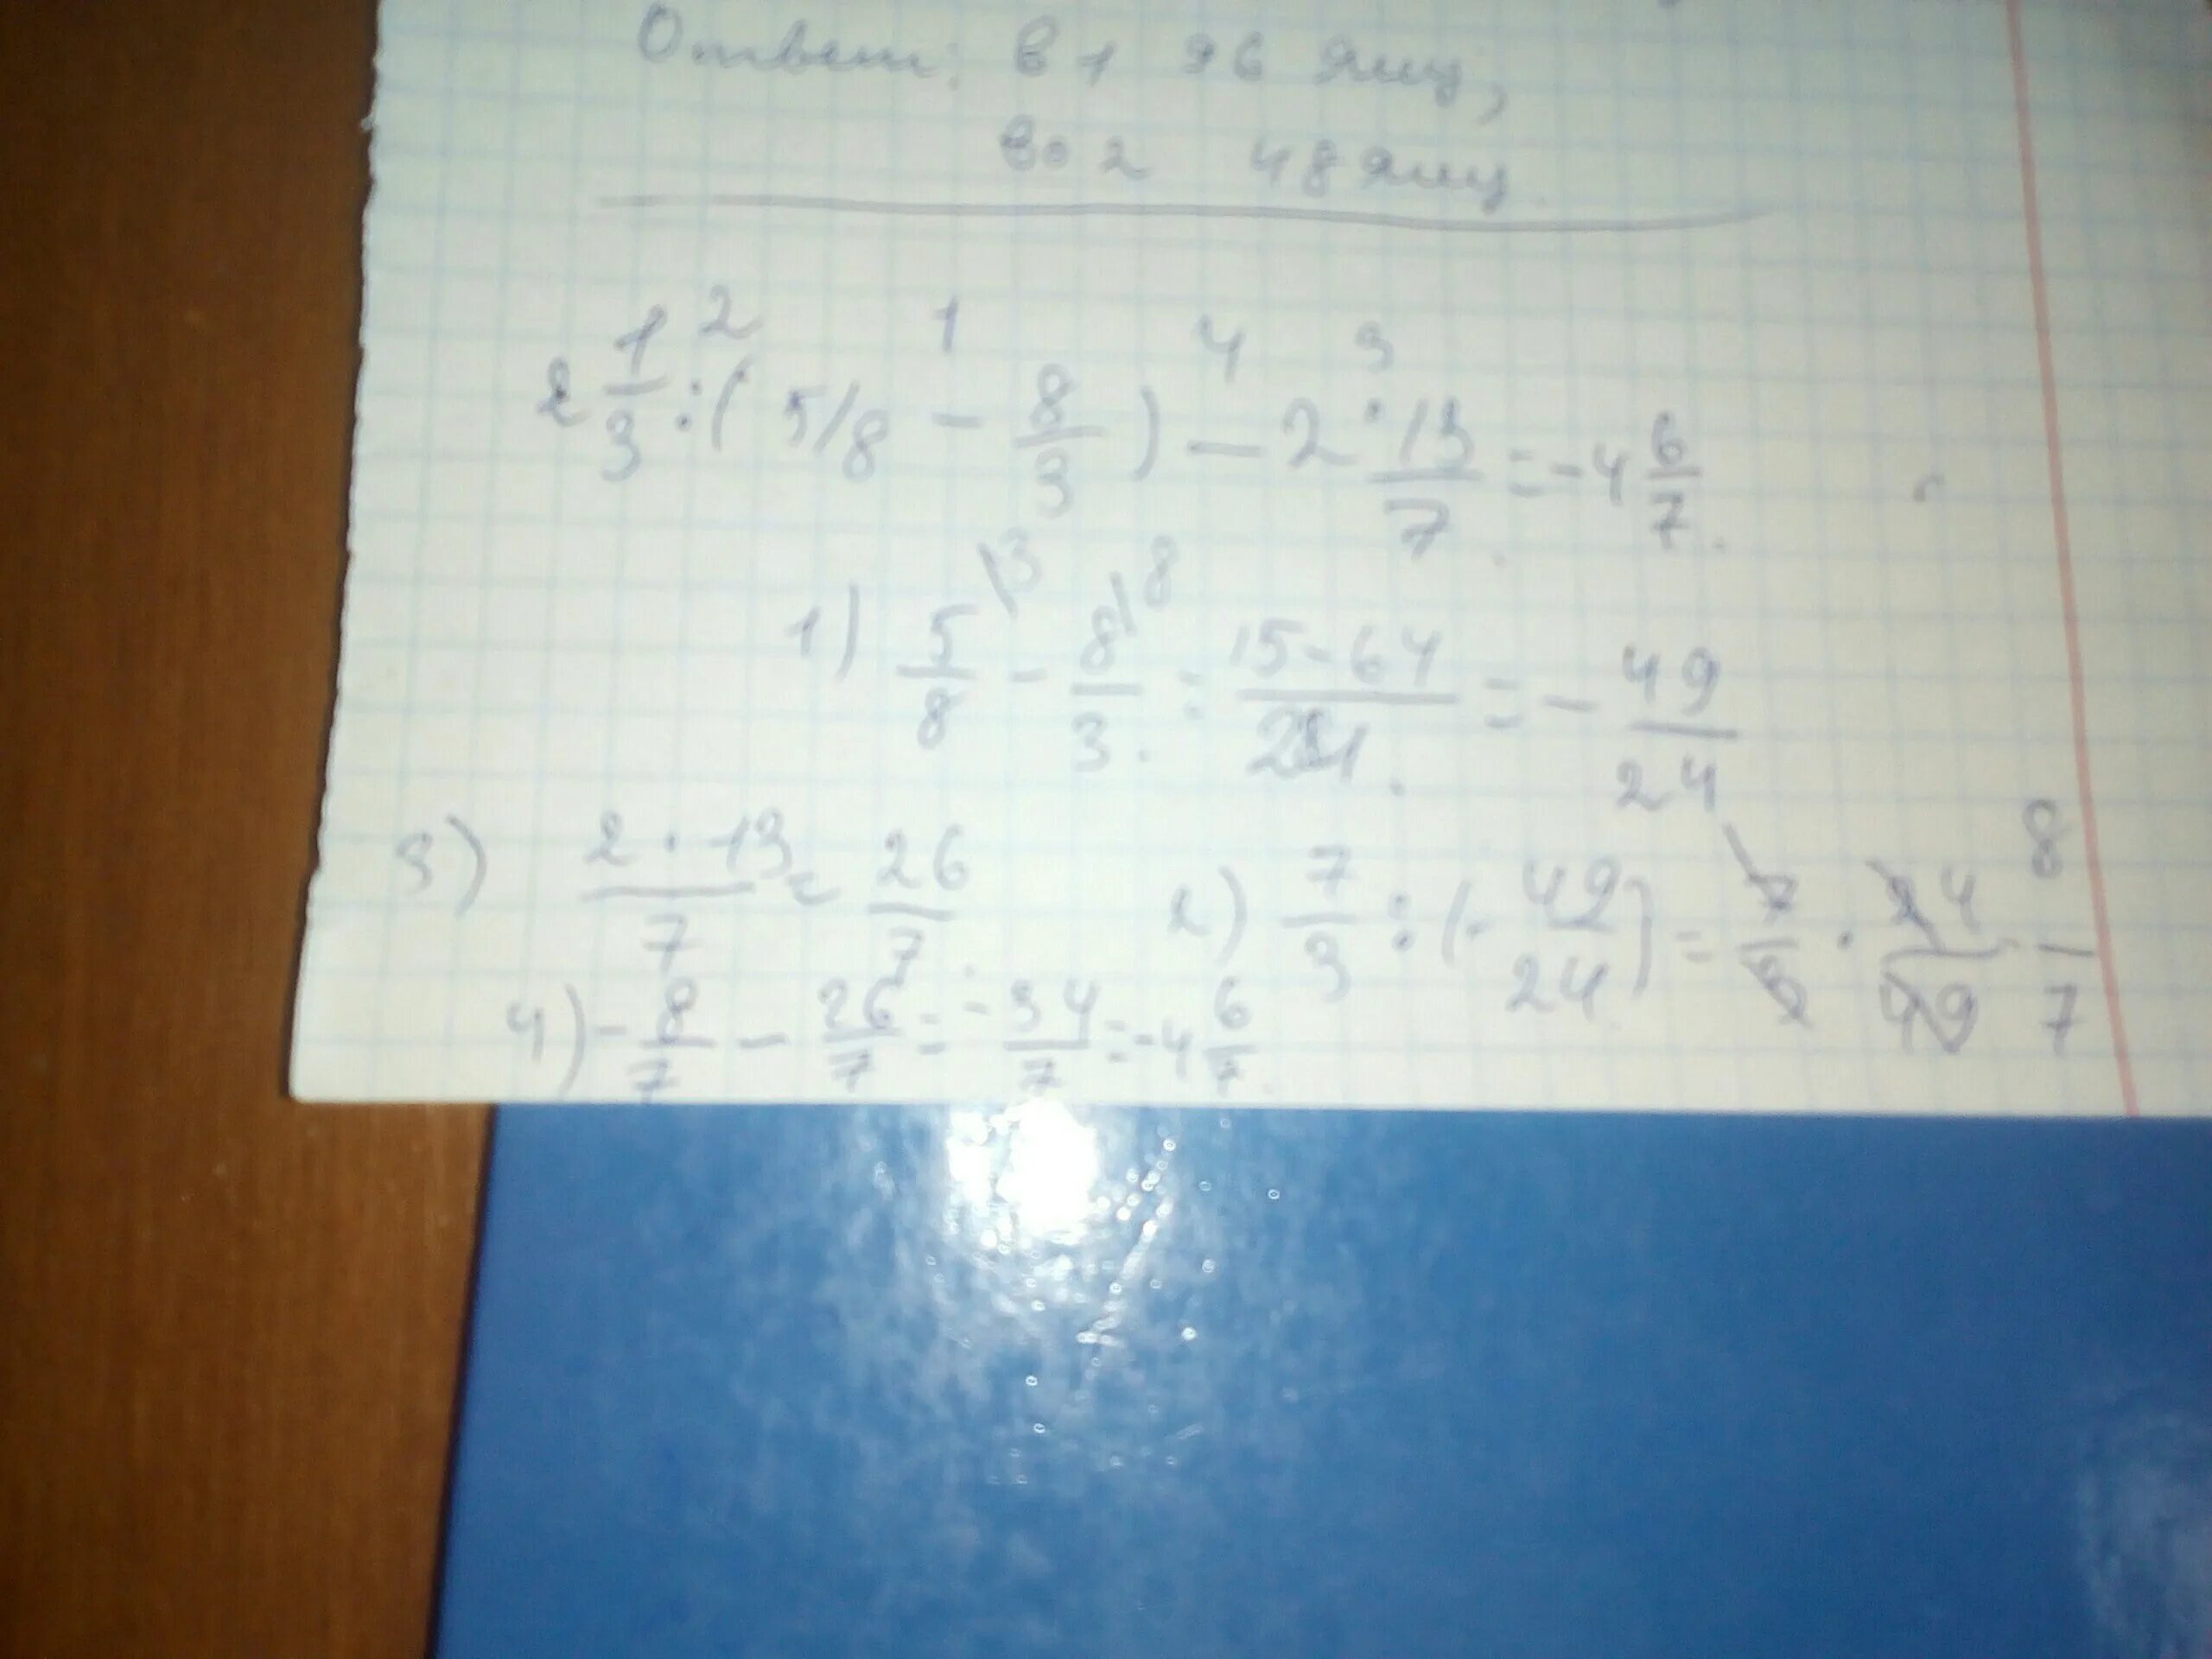 Ответ: в 1 96 яиц,
во 2 48 яиц.
2 1 4 3
2 1/3 : ( 5/8 - 8/3 ) - 2 · 13/7 = -4 6/7.
1) 5/8 \3 - 8/3 \8 = 15-64/24 = - 49/24
3) 2 · 13/7 = 26/7.
2) 7/3 : (- 49/24) = 7/3 · 24/49 - 8/7
4) - 8/7 - 26/7 = - 34/7 = -4 6/7.